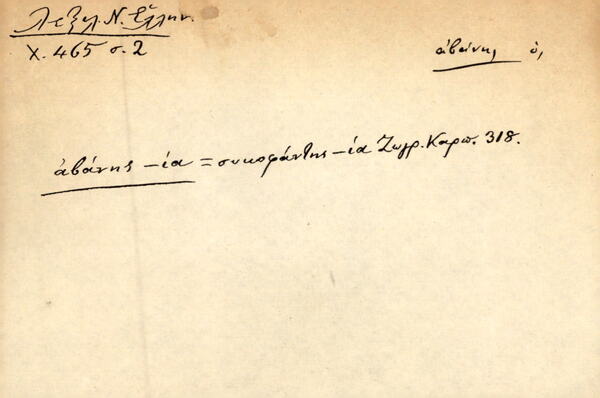 Λεξιλ. Ν. Ἑλλην.
Χ. 465 σ. 2
ἀβάνης ὁ,
ἀβάνης -ία = συκοφάντης -ία Ζωγρ. Καρπ. 318.